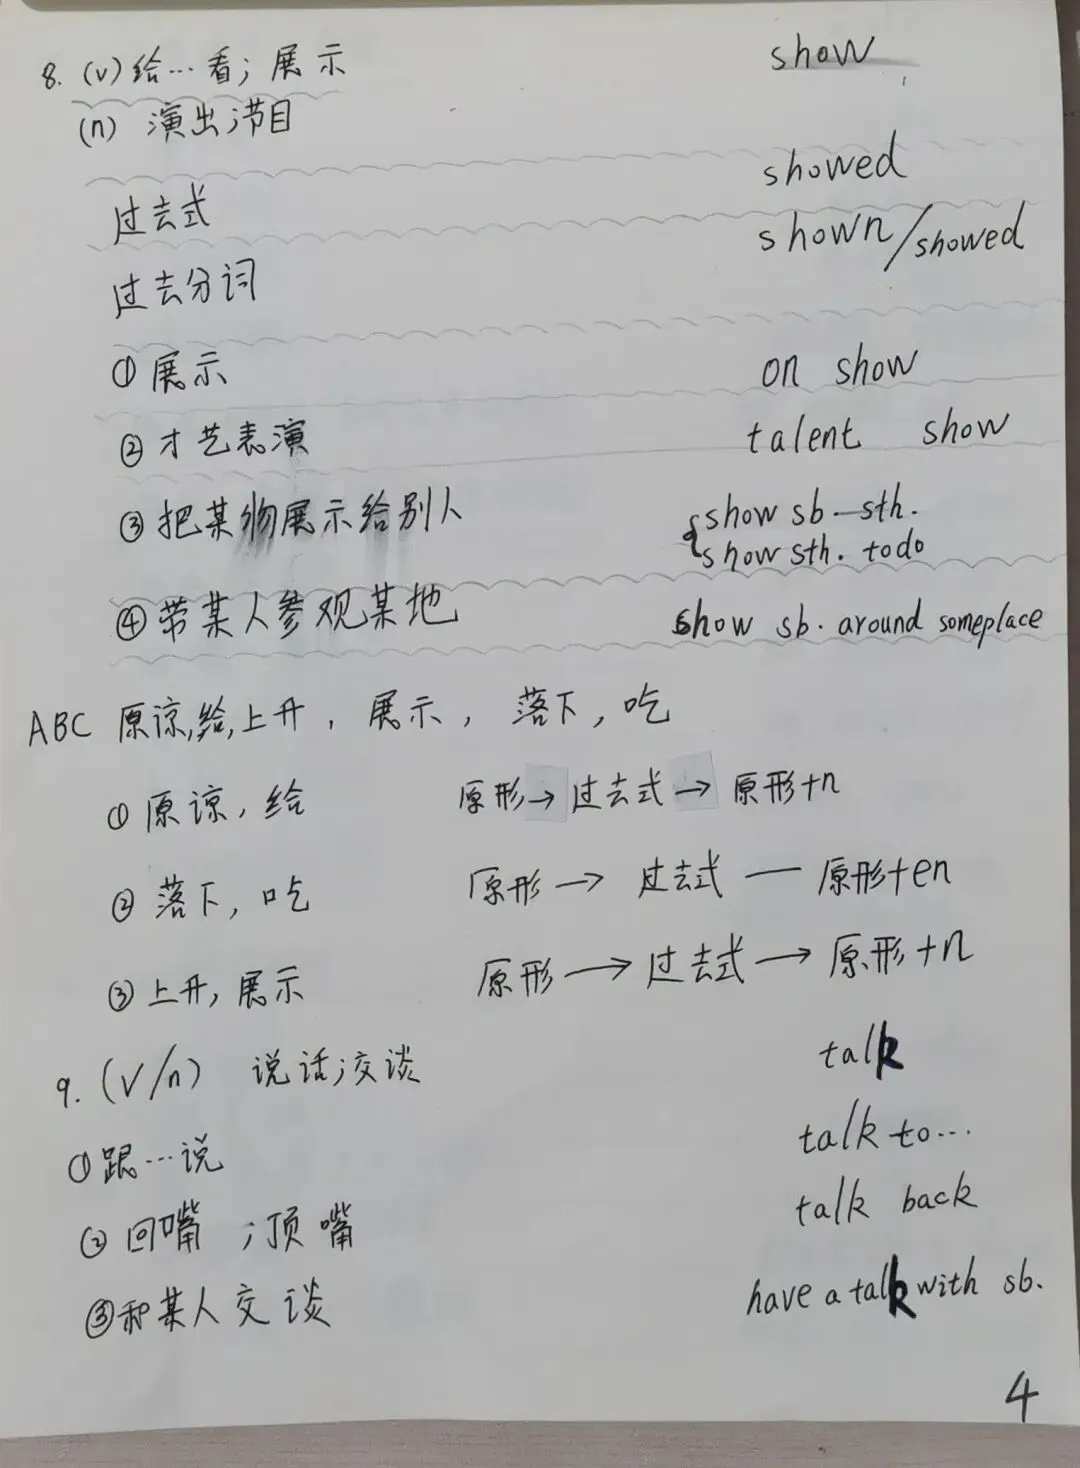 8. (v)给…看；展示 show
(n) 演出；节目
过去式 showed
过去分词 shown/showed
① 展示 on show
② 才艺表演 talent show
③ 把某物展示给别人 show sb sth.
show sth. todo
④ 带某人参观某地 show sb. around someplace
ABC 原谅,给,上升，展示，落下，吃
① 原谅，给 原形→过去式→原形+n
② 落下，吃 原形→过去式—原形+en
③ 上升，展示 原形→过去式→原形+n
9. (V/n) 说话；交谈 talk
① 跟…说 talk to…
② 回嘴；顶嘴 talk back
③ 和某人交谈 have a talk with sb.
4